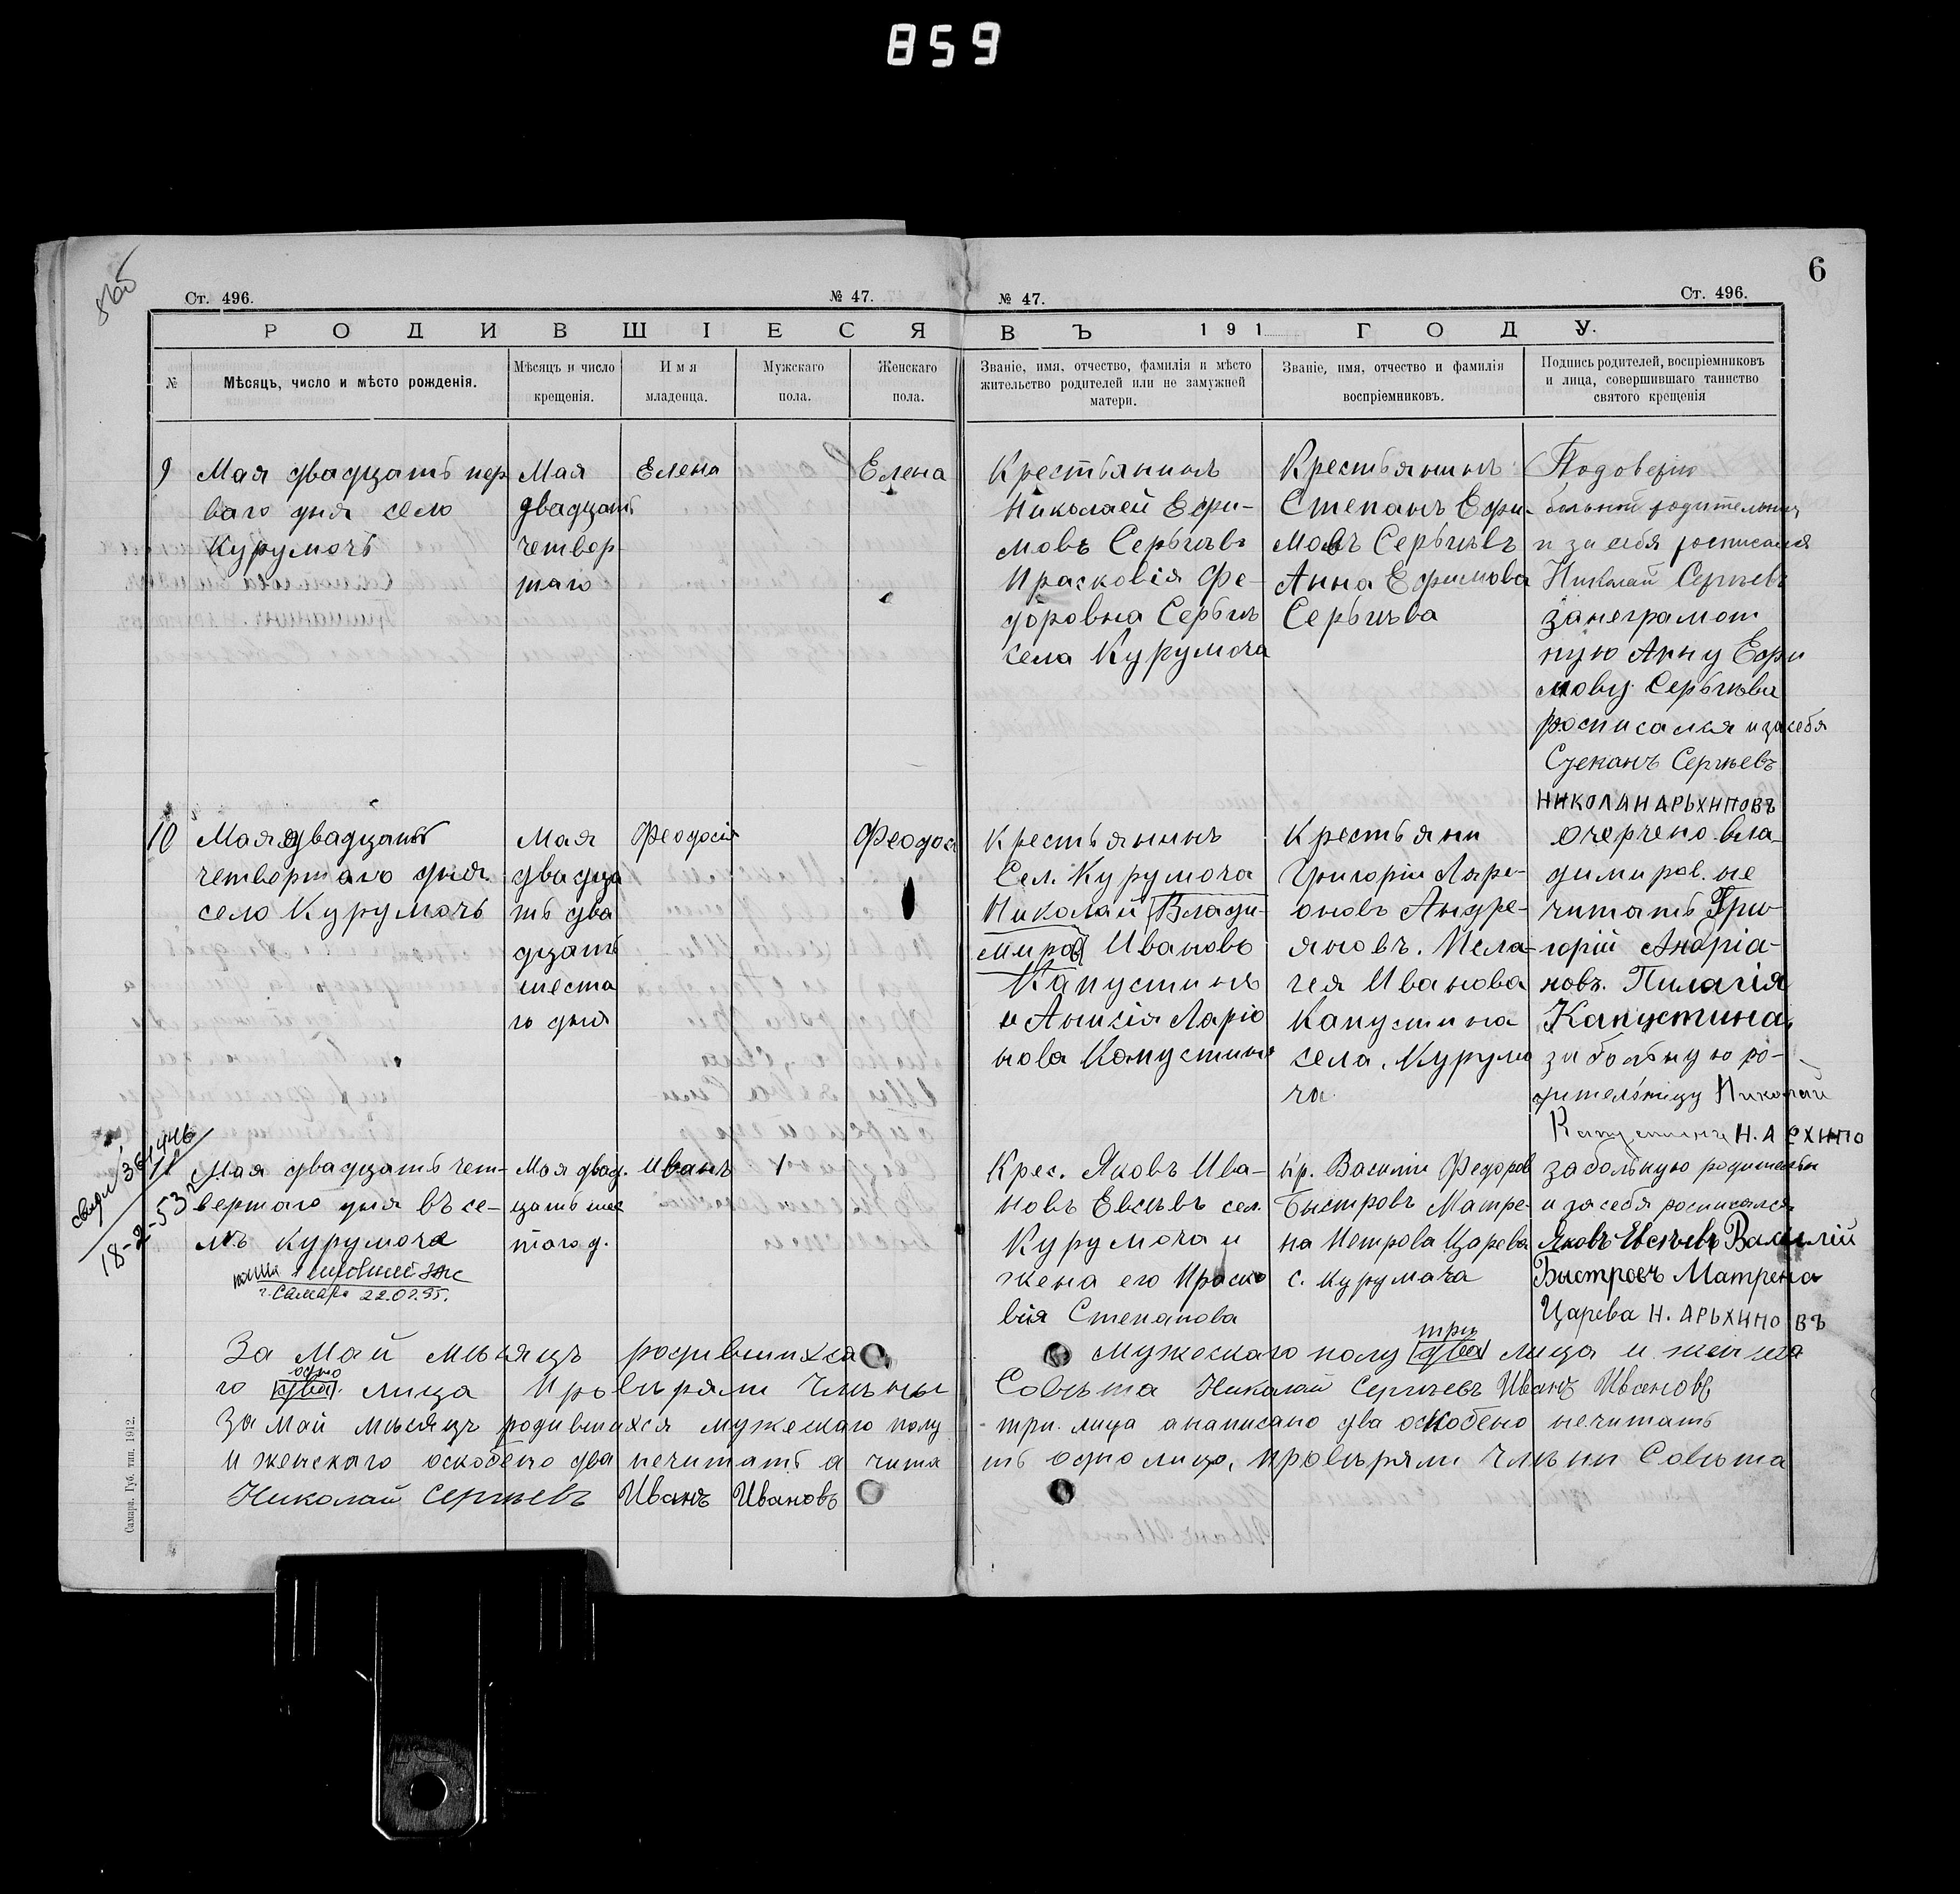 859
6
Ст. 496.
№ 47.
№ 47.
Ст. 496.
РОДИВШІЕСЯ
ВЪ 191 ГОДУ.
№
Мѣсяцъ, число и мѣсто рожденія.
Мѣсяцъ и число крещенія.
Имя младенца.
Мужскаго пола.
Женскаго пола.
Званіе, имя, отчество, фамилія и мѣсто
жительство родителей или не замужней
матери.
Званіе, имя, отчество и фамилія
воспріемниковъ.
Подпись родителей, воспріемниковъ
и лица, совершившаго таинство
святого крещенія
9
Мая двадцать пер
ваго дня село
Курумочь
Мая
двадцать
четвер
таго
Елена
Елена
Крестьянинъ
Николаей Ефи-
мовъ Сергѣевъ
Прасковія Фе-
доровна
села Курумоча
Крестьянинъ
Степанъ Ефи-
мовъ
Анна Ефимова
и за себя росписался
Николай Сергѣевъ
занеграмот
ную Анну Ефи
мову
росписался и за себя
Степанъ Сергѣевъ
НИКОЛАЙ АРЬХИПОВЪ
10
Мая двадцать
четвертаго дня
село Курумочь
Мая
двадца
ть два
дцать
шеста
го дня
Феодосія
Феодос
Крестьянинъ
Сел. Курумоча
Николай Влади-
миров Ивановъ
Капустинъ
и Анисія Ларіо
нова Капустина
Крестьяни
Григорій Ларе-
оновъ Андре-
яновъ. Пела-
гея Иванова
Капустина
села. Курумо
ча
очерчено Вла-
димиров. не
читать Гри-
горій Андріа-
новъ. Пилагія
Капустина.
за больную ро-
дительницу Николай
Капустинъ Н. АРХИПО
11
Мая двадцать чет-
вертаго дня въ се-
лѣ Курумоче
Мая двад.
цать шес
того д.
Иванъ
1
Крес. Яковъ Ива-
новъ Евсѣвъ сел.
Курумоча и
жена его Праско
вія Степанова
кр. Василій Федоров
Быстровъ Матре-
на Петрова Царева
с. Курумоча
за больную
и за себя росписался
Яковъ Евсѣевъ Василій
Быстровъ Матрена
Царева Н. АРЬХИПОВЪ
18-2-53
г. Самара 22.02.95.
За Май мѣсяцъ родившихся мужескаго полу три два лица и женска
го одно два. лица Провѣряли Члѣны Совѣта Николай Сергѣевъ Иванъ Ивановъ
За май мѣсяцъ родившихся мужескаго полу три. лица а написано два оскобено нечитать
и женскаго оскобено два нечитать а чита ть одно лицо, провѣряли Члѣни Совѣта
Николай Сергѣевъ Иванъ Ивановъ
Самара. Губ. тип. 1912.